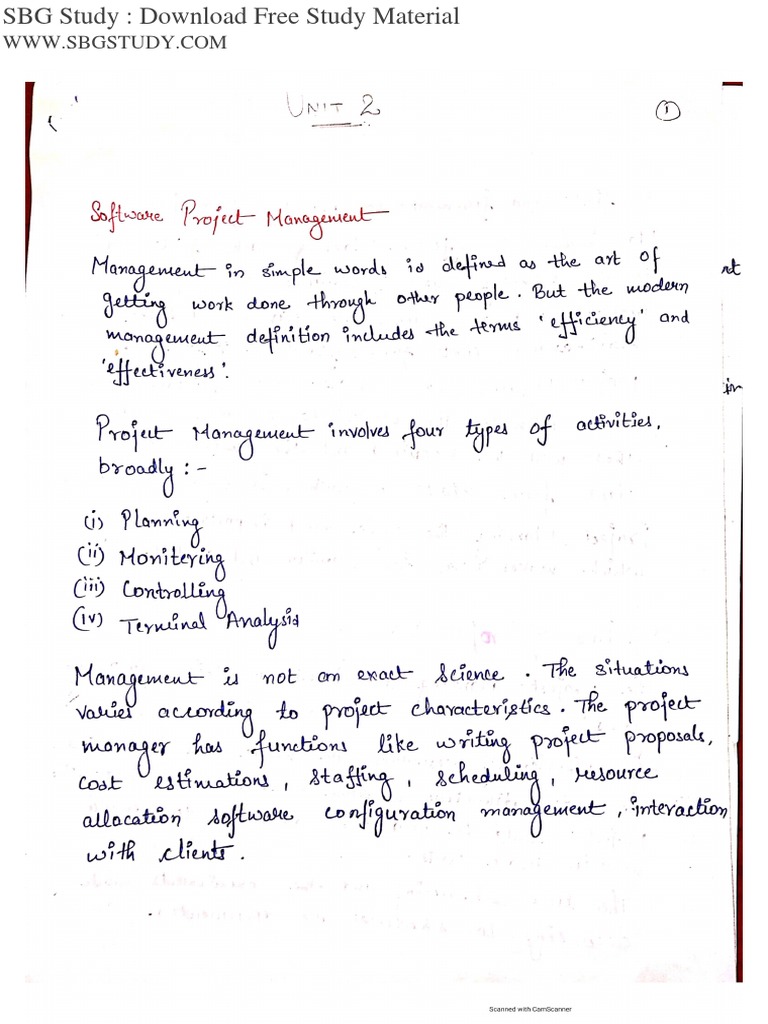 SBG Study : Download Free Study Material
WWW.SBGSTUDY.COM
UNIT 2
1
Software Project Management
Management in simple words is defined as the art of
getting work done through other people. But the modern
management definition includes the terms 'efficiency' and
'effectiveness'.
Project Management involves four types of activities,
broadly :-
(i) Planning
(ii) Monitering
(iii) Controlling
(iv) Terminal Analysis
Management is not an exact science. The situations
varies according to project characteristics. The project
manager has functions like writing project proposals,
cost estimations, staffing, scheduling, resource
allacation software configuration management, interaction
with clients.
Scanned with CamScanner